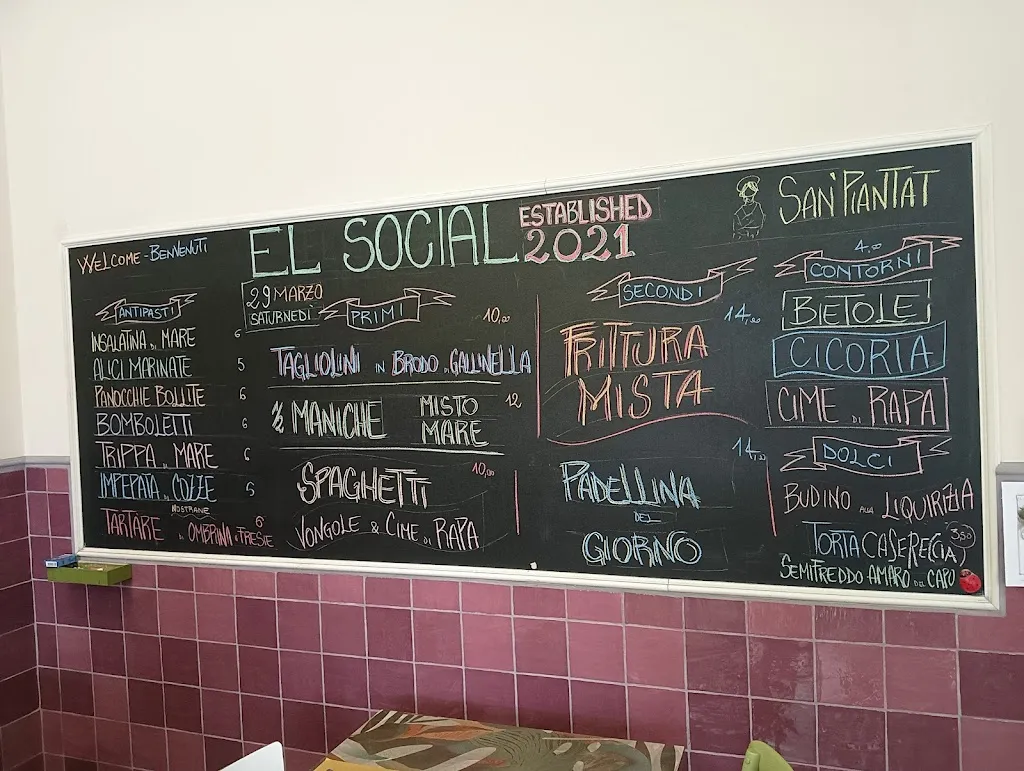 WELCOME - BENVENUTI
EL SOCIAL
ESTABLISHED
2021
SAN PIANTAT
29 MARZO
SATURNEDÌ
ANTIPASTI
INSALATINA DI MARE 6
ALICI MARINATE 5
PANOCCHIE BOLLITE 6
BOMBOLETTI 6
TRIPPA DI MARE 6
IMPEPATA DI COZZE 5
NOSTRANE
TARTARE DI OMBRINA O TRESIE 6
PRIMI
10,00
TAGLIOLINI IN BRODO DI GALLINELLA
½ MANICHE MISTO MARE 12
SPAGHETTI 10,00
VONGOLE & CIME DI RAPA
SECONDI
14,00
FRITTURA
MISTA
14,00
PADELLINA
DEL
GIORNO
4,00
CONTORNI
BIETOLE
CICORIA
CIME DI RAPA
DOLCI
BUDINO ALLA LIQUIRIZIA
TORTA CASERECCIA 3,50
SEMIFREDDO AMARO DEL CAPO